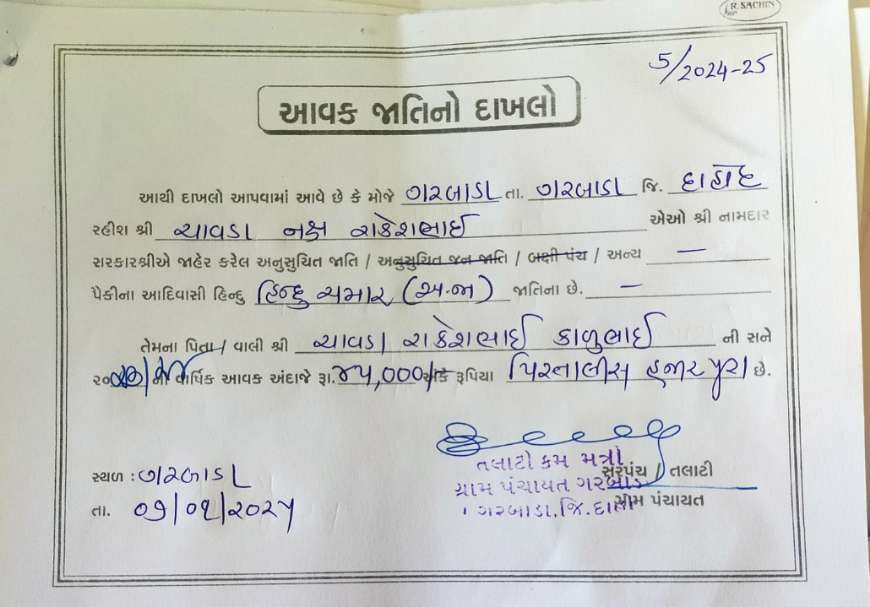 R. SACHIN
5/2024-25
આવક જાતિનો દાખલો
આથી દાખલો આપવામાં આવે છે કે મોજે ગરબાડા તા. ગરબાડા જિ. દાહોદ
રહીશ શ્રી ચાવડા નક્ષ રાકેશભાઈ એઓ શ્રી નામદાર
સરકારશ્રીએ જાહેર કરેલ અનુસુચિત જાતિ / અનુસુચિત જન જાતિ / બક્ષી પંચ / અન્ય —
પૈકીના આદિવાસી હિન્દુ હિન્દુ ચમાર (અ.જા) જાતિના છે. —
તેમના પિતા / વાલી શ્રી ચાવડા રાકેશભાઈ કાળુભાઈ ની સને
૨૦ ની વાર્ષિક આવક અંદાજે રૂા. ૪૫,000/- અંકે રૂપિયા પિસ્તાલીસ હજાર પુરા છે.
તલાટી કમ મંત્રી
સરપંચ / તલાટી
સ્થળ : ગરબાડા
ગ્રામ પંચાયત ગરબાડા
ગ્રામ પંચાયત
તા. ૦૧/૦૧/૨૦૨૫
ગરબાડા, જિ. દાહોદ